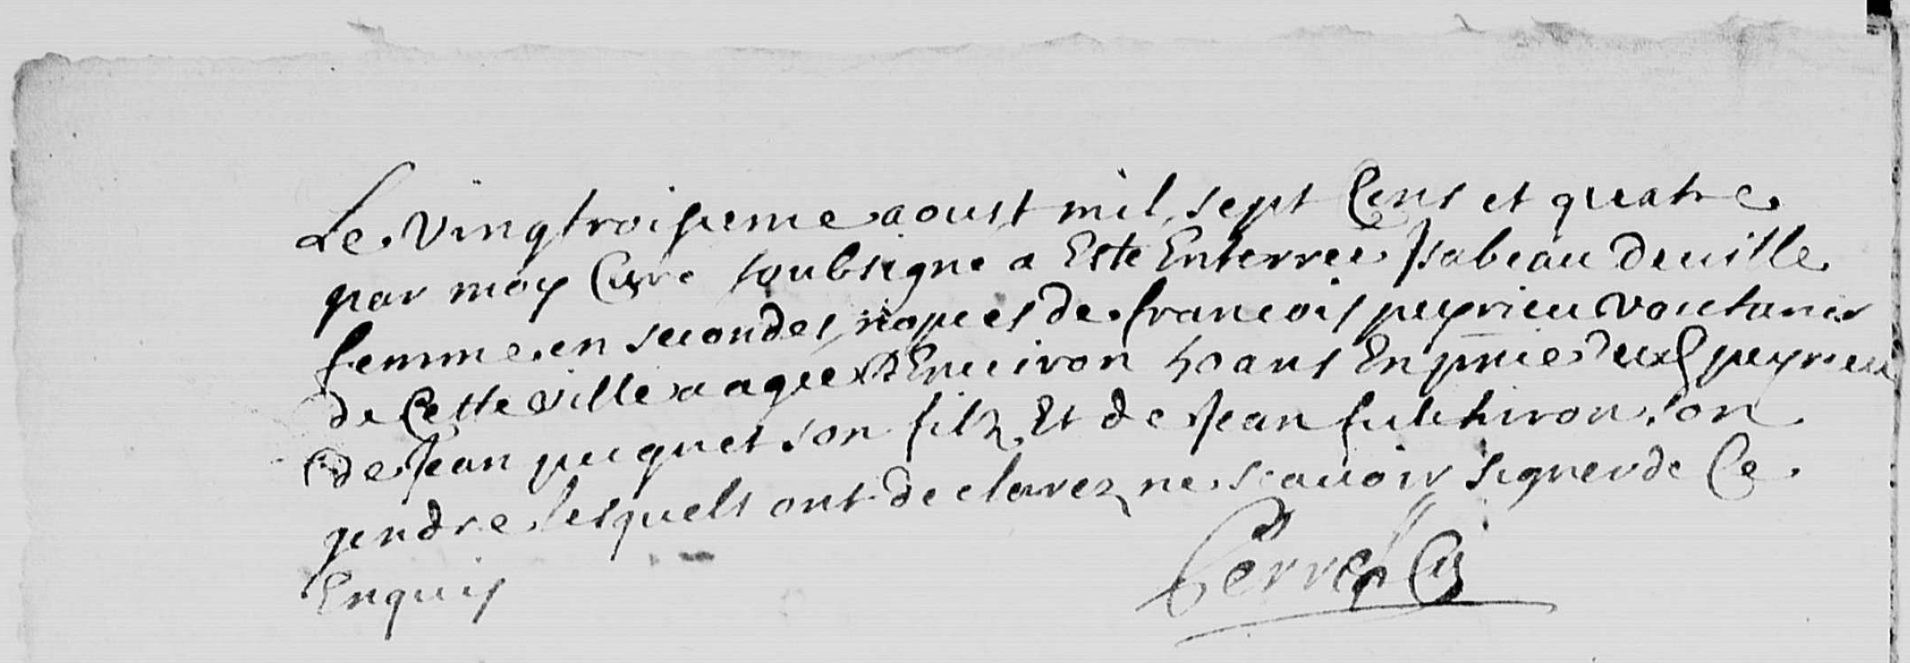 Le vingtroisieme aoust mil sept Cens et quatre
par moy Curé soubsigne a Este Enterree Isabeau Deville
femme en secondes nopces de francois peyrieu voicturier
de Cette ville aagee D'Environ 50 ans En pñce dud peyrieu
de Jean puquet son filz Et de Jean fulchiron son
gendre lesquels ont declarez ne scavoir signer de Ce
Enquis